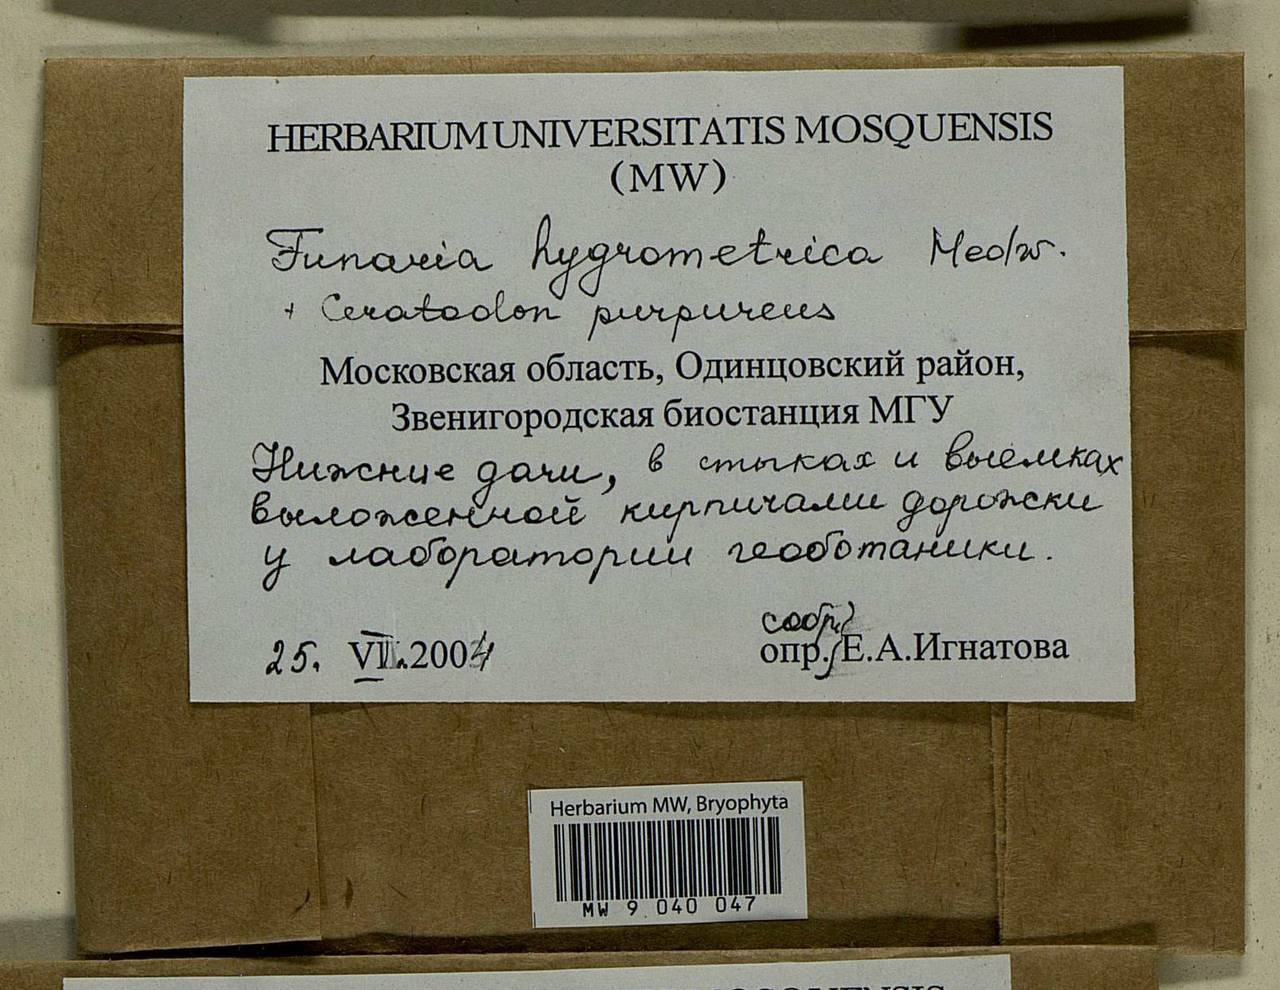 HERBARIUM UNIVERSITATIS MOSQUENSIS
(MW)
Funaria hygrometrica Hedw.
+ Ceratodon purpureus
Московская область, Одинцовский район,
Звенигородская биостанция МГУ
Нижние дачи, в стыках и выемках
выложенной кирпичами дорожки
у лаборатории геоботаники.
собр.
25. VI.2004 опр. Е.А.Игнатова
Herbarium MW, Bryophyta
MW 9 040 047